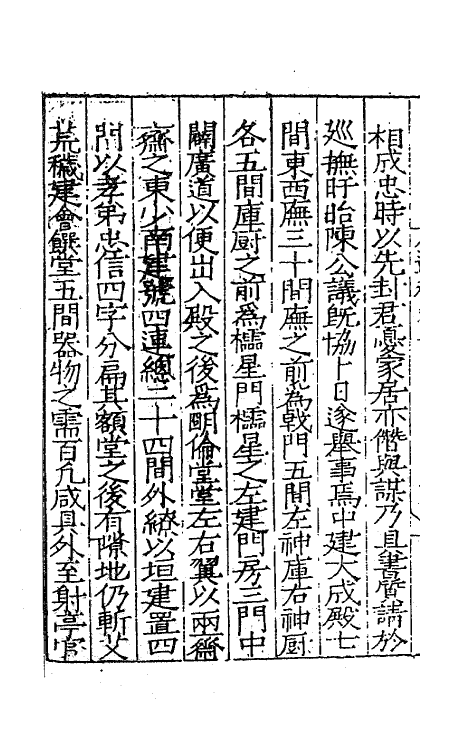 相成忠時以先封君憂家居亦僭與謀乃具書幣請於
廵撫盱眙陳公議既協卜日遂舉事焉中建大成殿七
間東西廡三十間廡之前為戟門五間左神庫右神厨
各五間庫厨之前為櫺星門櫺星之左建門房三門中
闢廣道以便出入殿之後為明倫堂堂左右翼以兩齋
齋之東少南建號四連總二十四間外繚以垣建置四
門以孝弟忠信四字分扁其額堂之後有隙地仍斬艾
荒穢建會饌堂五間器物之需百凡咸具外至射亭官